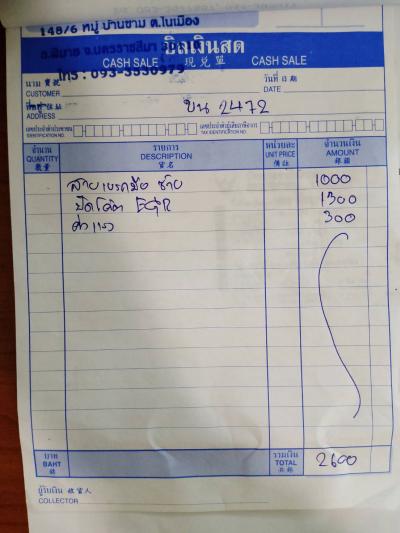 148/6 หมู่ บ้านขาม ต.ในเมือง
อ.พิมาย จ.นครราชสีมา
โทร : 093-5550979
บิลเงินสด
CASH SALE 現兌單 CASH SALE
นาม 寶號
CUSTOMER
วันที่ 日期
DATE
ที่อยู่ 住址
ADDRESS
ขน 2472
เลขประจำตัวประชาชน
IDENTIFICATION NO
เลขประจำตัวผู้เสียภาษีอากร
TAX IDENTIFICATION NO
จำนวน รายการ หน่วยละ จำนวนเงิน
QUANTITY DESCRIPTION UNIT PRICE AMOUNT
數量 貨名 價註 銀碼
สายเบรคมือ ซ้าย 1000
ปิดโค้ด EGR 1300
ค่าแรง 300
บาท รวมเงิน
BAHT TOTAL 2600
ผู้รับเงิน 收貨人
COLLECTOR